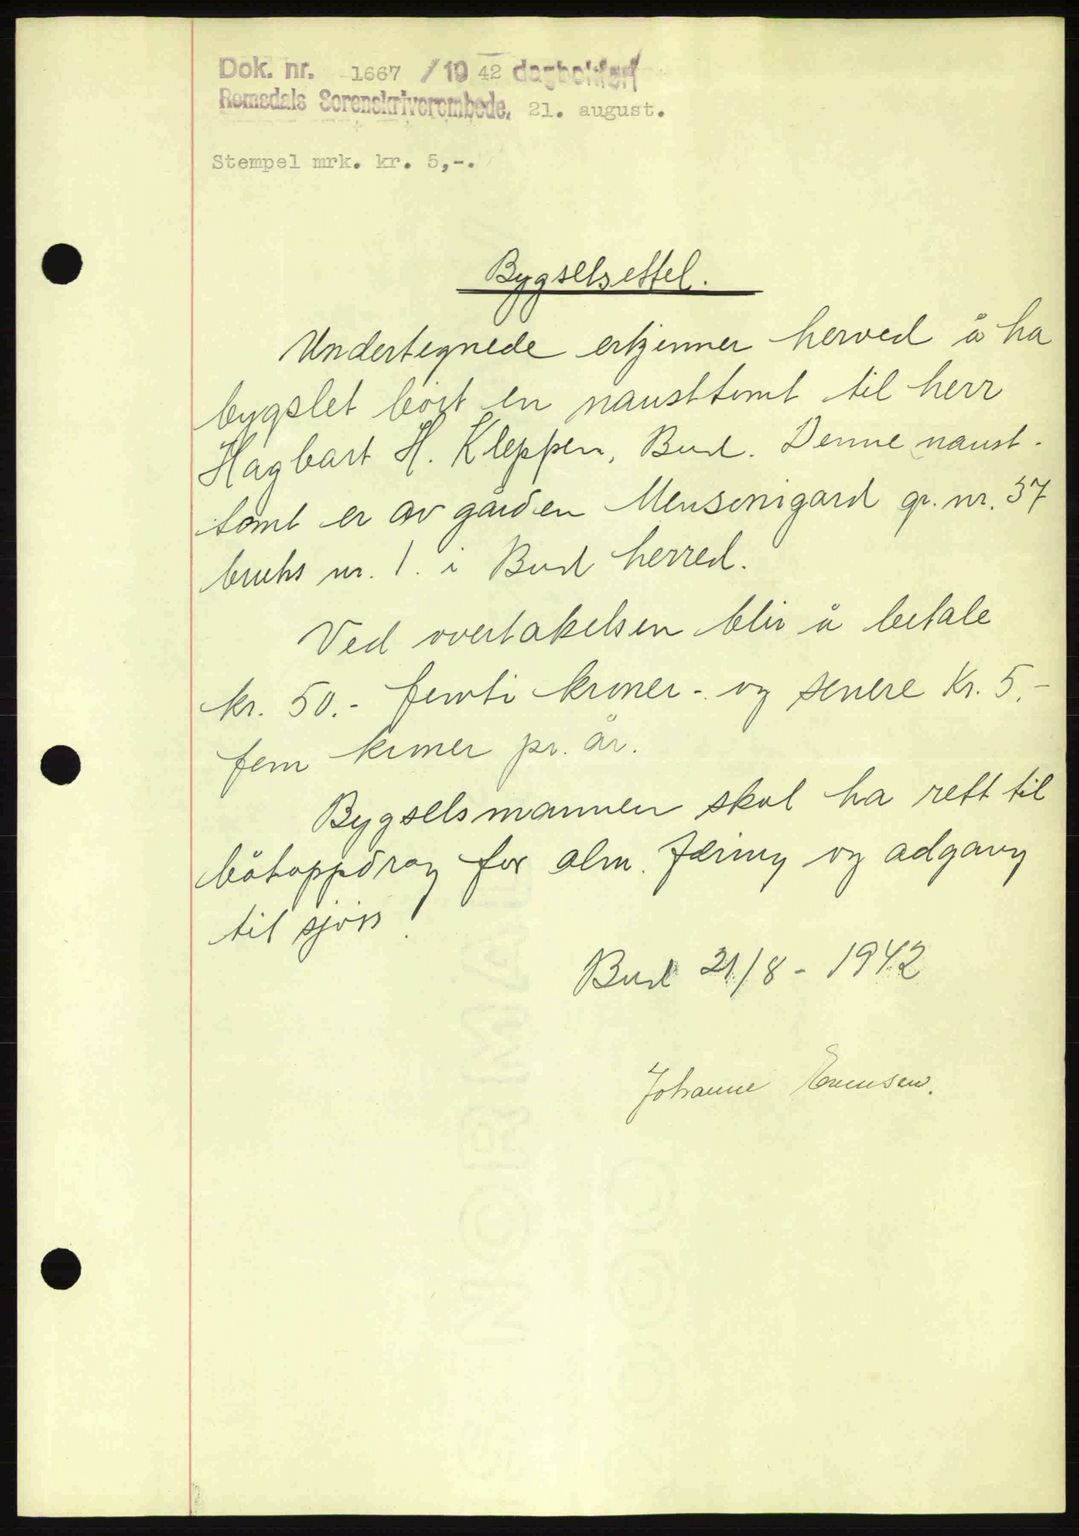 Dok. nr. 1667 /19 42 dagbokført
Romsdals Sorenskriverembede. 21. august.
Stempel mrk. kr. 5,-.
Bygselsettel.
Undertegnede erkjenner herved å ha
bygslet bort en nausttomt til herr
Hagbart H. Kleppen, Bud. Denne naust-
tomt er av gården gr. nr. 37
bruks nr. 1. i Bud herred.
Ved overtakelsen blir å betale
kr. 50.- femti kroner - og senere Kr. 5.-
fem kroner pr. år.
Bygselsmannen skal ha rett til
båtoppdrag for alm. færing og adgang
til sjøss.
Bud 21/8 - 1942
Johanne
NORMAL